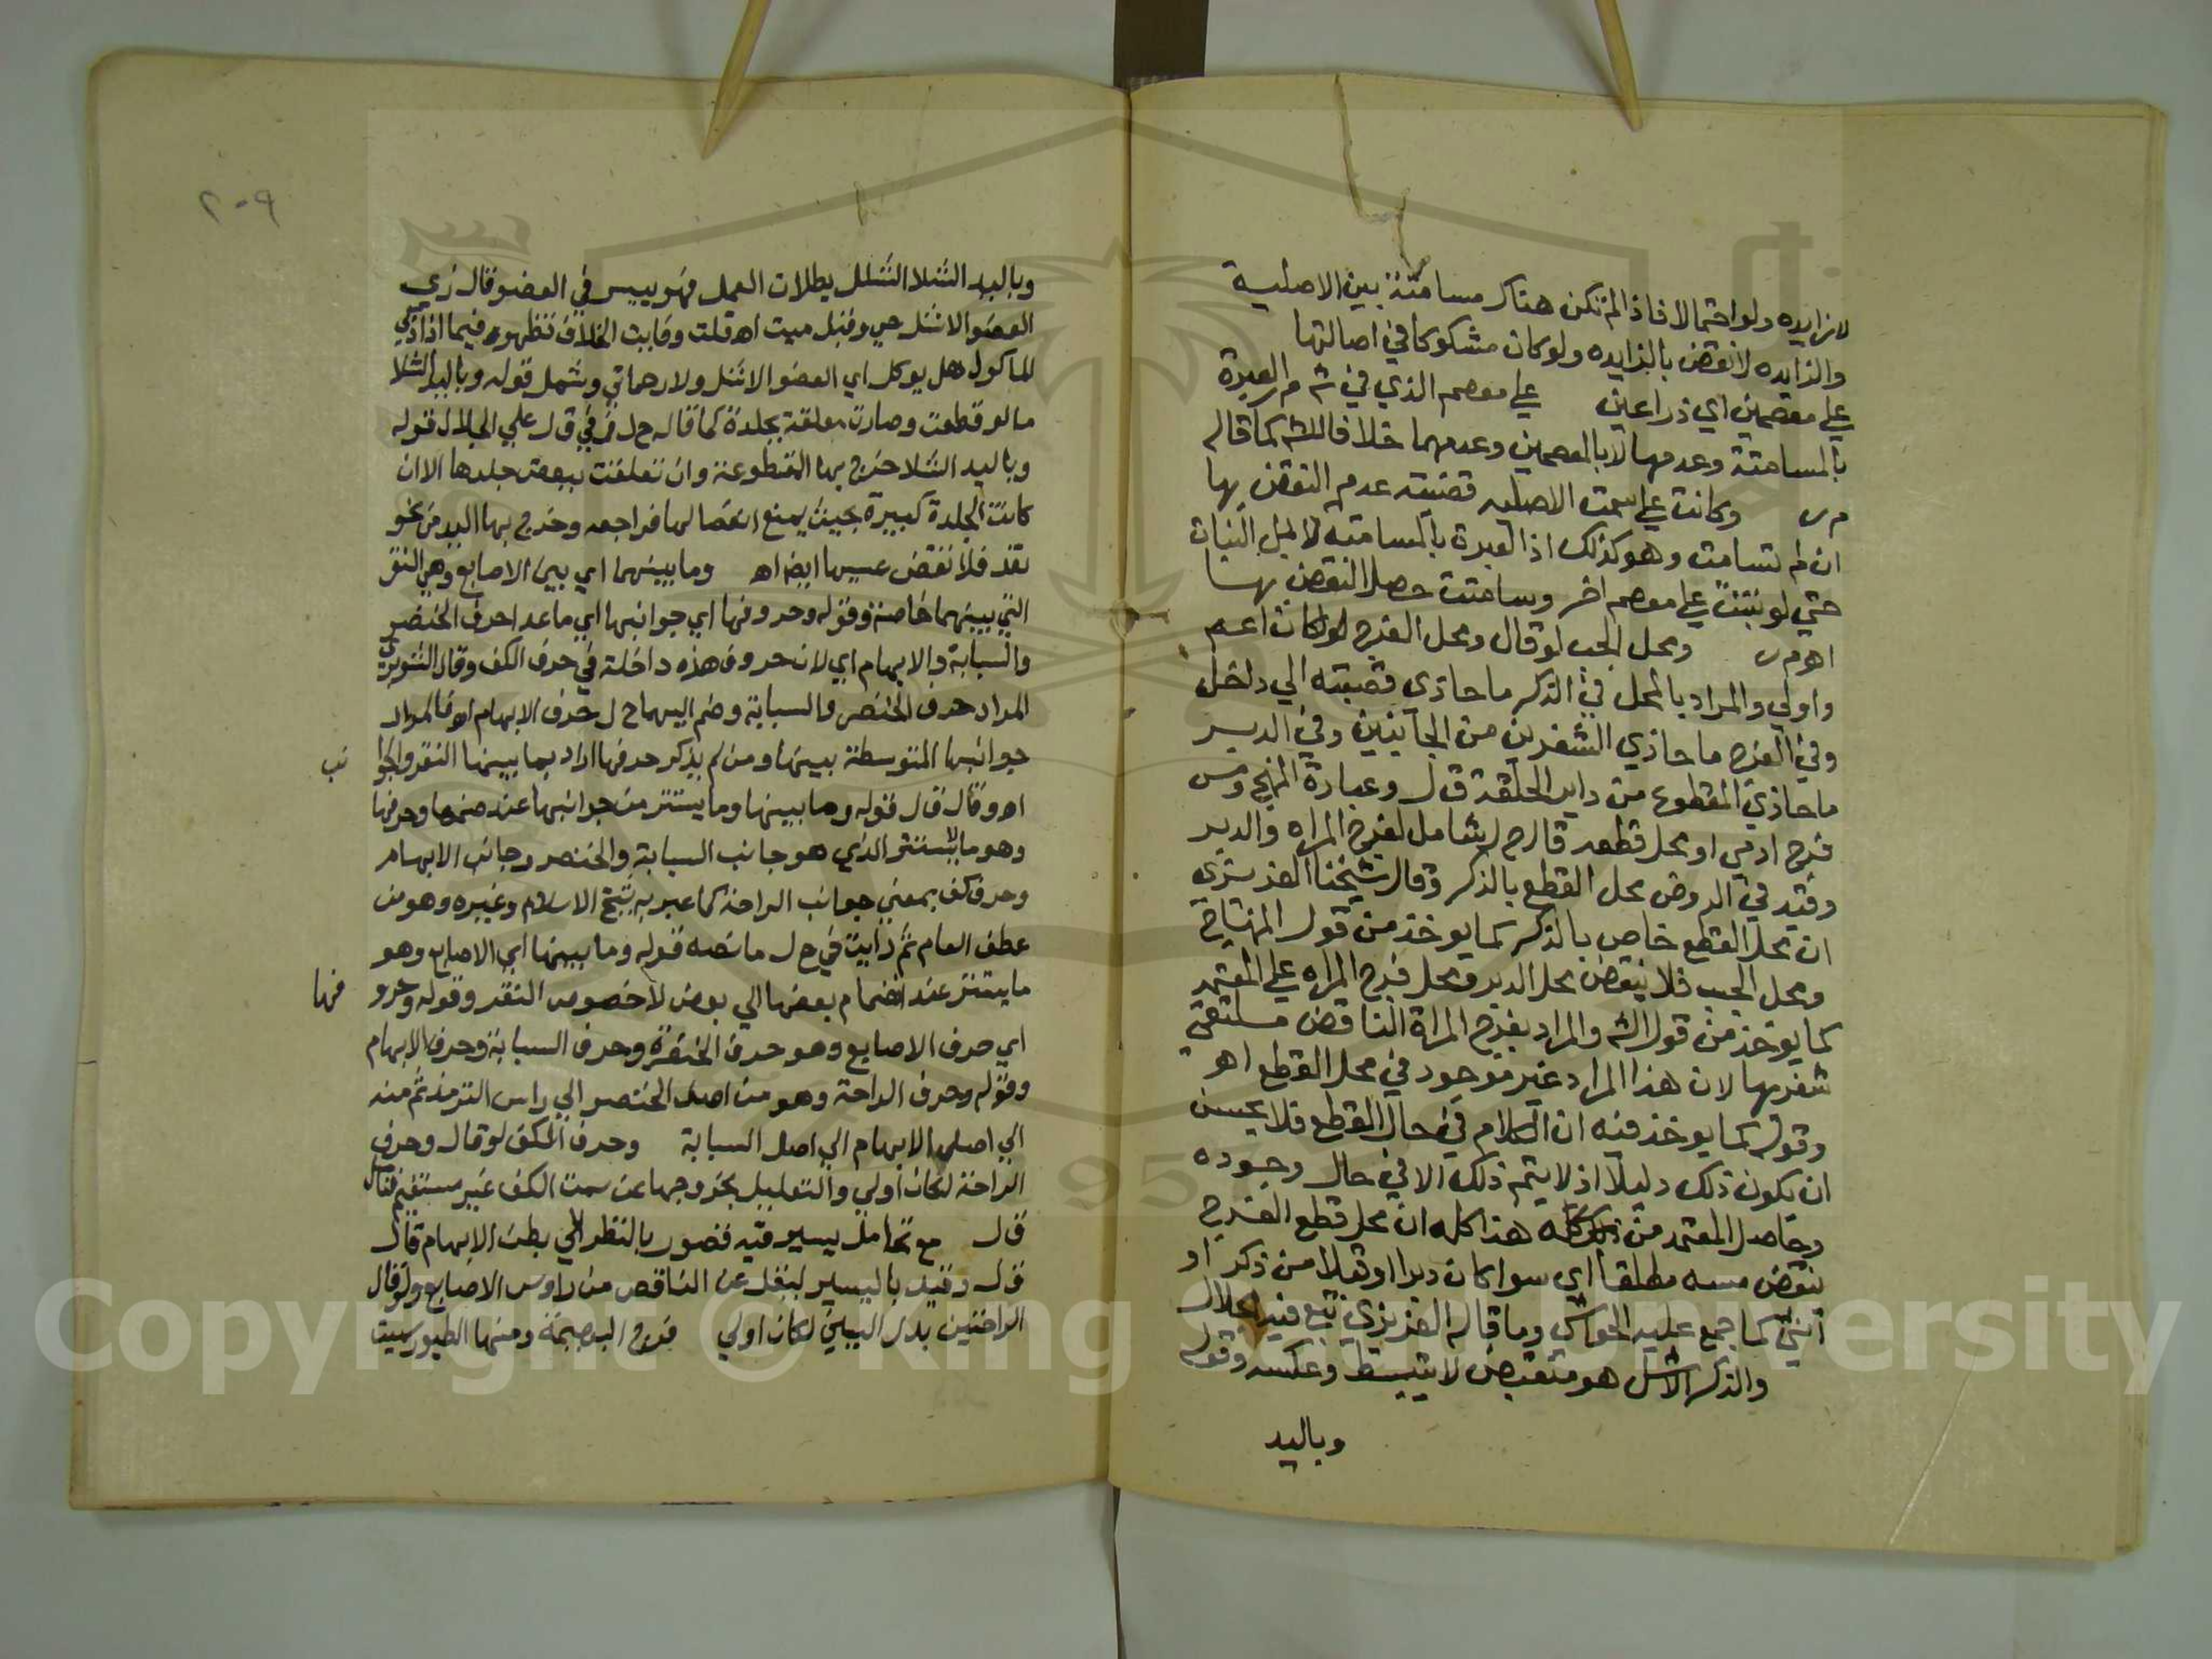 لا زايده ولو احتمالا فاذا لم تكن هناك مسامتة بين الاصلية
والزايده لا نقض بالزايده ولو كان مشكوكا في اصالتها
علي معصمين اي ذراعين علي معصم الذي في ش م ر العبرة
بالمسامتة وعدمها لا بالمعصمين وعدمهما خلافا للش كما قاله
م ر وكانت علي سمت الاصليه قضيته عدم النقض بها
ان لم تسامت وهو كذلك اذ العبرة بالمسامته لا لمحل النبات
حتي لو نبتت علي معصم اخر وسامتت حصل النقض بها
اه م ر ومحل الجب لو قال ومحل الفرج لكان اعم
واولي والمراد بالمحل في الذكر ما حاذي قصبته الي داخل
وفي الفرج ما حاذي الشفرين من الجانبين وفي الدبر
ما حاذي المقطوع من داير الحلقة ق ل وعبارة المنهج ومس
فرج ادمي او محل قطعه قال ح ل شامل لفرج المراه والدبر
وقيد في الروض محل القطع بالذكر وقال شيخنا العزيزي
ان محل القطع خاص بالذكر كما يوخذ من قول المنهاج
ومحل الجب فلا ينقض محل الدبر ومحل فرج المراه علي المعتمد
كما يوخذ من قول الش والمراد بفرج المراة الناقض ملتقي
شفريها لان هذا المراد غير موجود في محل القطع اه
وقوله كما يوخذ فيه ان الكلام في حال القطع فلا يحسن
ان يكون ذلك دليلا اذ لا يتم ذلك الا في حال وجوده
وحاصل المعتمد من هذا كله ان محل قطع الفرج
ينقض مسه مطلقا اي سوا كان دبرا او قبلا من ذكر او
انثي كما جمع عليه الحواشي وما قاله العزيزي تبع فيه الجلال
والذكر الاشل هو منقبض لا ينبسط وعكسه وقوله
وباليد
٢٠٩
وباليد الشلا الشلل بطلان العمل فهو يبيس في العضو قال زي
العضو الاشل حي وقيل ميت اه قلت وفايت الخلاف تظهر فيما اذا ذكي
الماكول هل يوكل اي العضو الاشل ولا رحماني وشمل قوله وباليد الشلا
ما لو قطعت وصارت معلقة بجلدة كما قاله ح ل في ق ل علي الجلال قوله
وباليد الشلا خرج بها المقطوعة وان تعلقت ببعض جلدها الا ان
كانت الجلدة كبيرة بحيث يمنع انفصالها فراجعه وخرج بها اليد من نحو
نقد فلا نقض بمسها ايضا اه وما بينهما اي بين الاصابع وهي النقر
التي بينهما خاصة وقوله وحروفها اي جوانبها اي ما عدا حرف الخنصر
والسبابة والابهام اي لان حروف هذه داخلة في حرف الكف وقال الشوبري
المراد حرف الخنصر والسبابة وضم اليها ح ل حرف الابهام اه فالمراد
جوانبها المتوسطة بينها ومن لم يذكر حرفها اراد بما بينها النقر والجوا نب
اه وقال ق ل قوله وما بينها وما يستتر من جوانبها عند ضمها وحرفها
وهو ما لا يستتر الذي هو جانب السبابة والخنصر وجانب الابهام
وحرف كف بمعني جوانب الراحة كما عبر به شيخ الاسلام وغيره وهو من
عطف العام ثم رايت في ح ل ما نصه قوله وما بينها اي الاصابع وهو
ما يستتر عند انضمام بعضها الي بعض لا خصوص النقر وقوله وحرو فها
اي حرف الاصابع وهو حرف الخنصر وحرف السبابة وحرف الابهام
وقوله وحرف الراحة وهو من اصل الخنصر الي راس الزند ثم منه
الي اصل الابهام الي اصل السبابة وحرف الكف لو قال وحرف
الراحة لكان اولي والتعليل بخروجها عن سمت الكف غير مستقيم قال
ق ل مع تحامل يسير فيه قصور بالنظر الي بطن الابهام قال
ق ل وقيد باليسير ليقل عن الناقص من راوس الاصابع ولو قال
الراحتين بدل اليدين لكان اولي فرج البهيمة ومنها الطيور ميت
Copyright © King Saud University